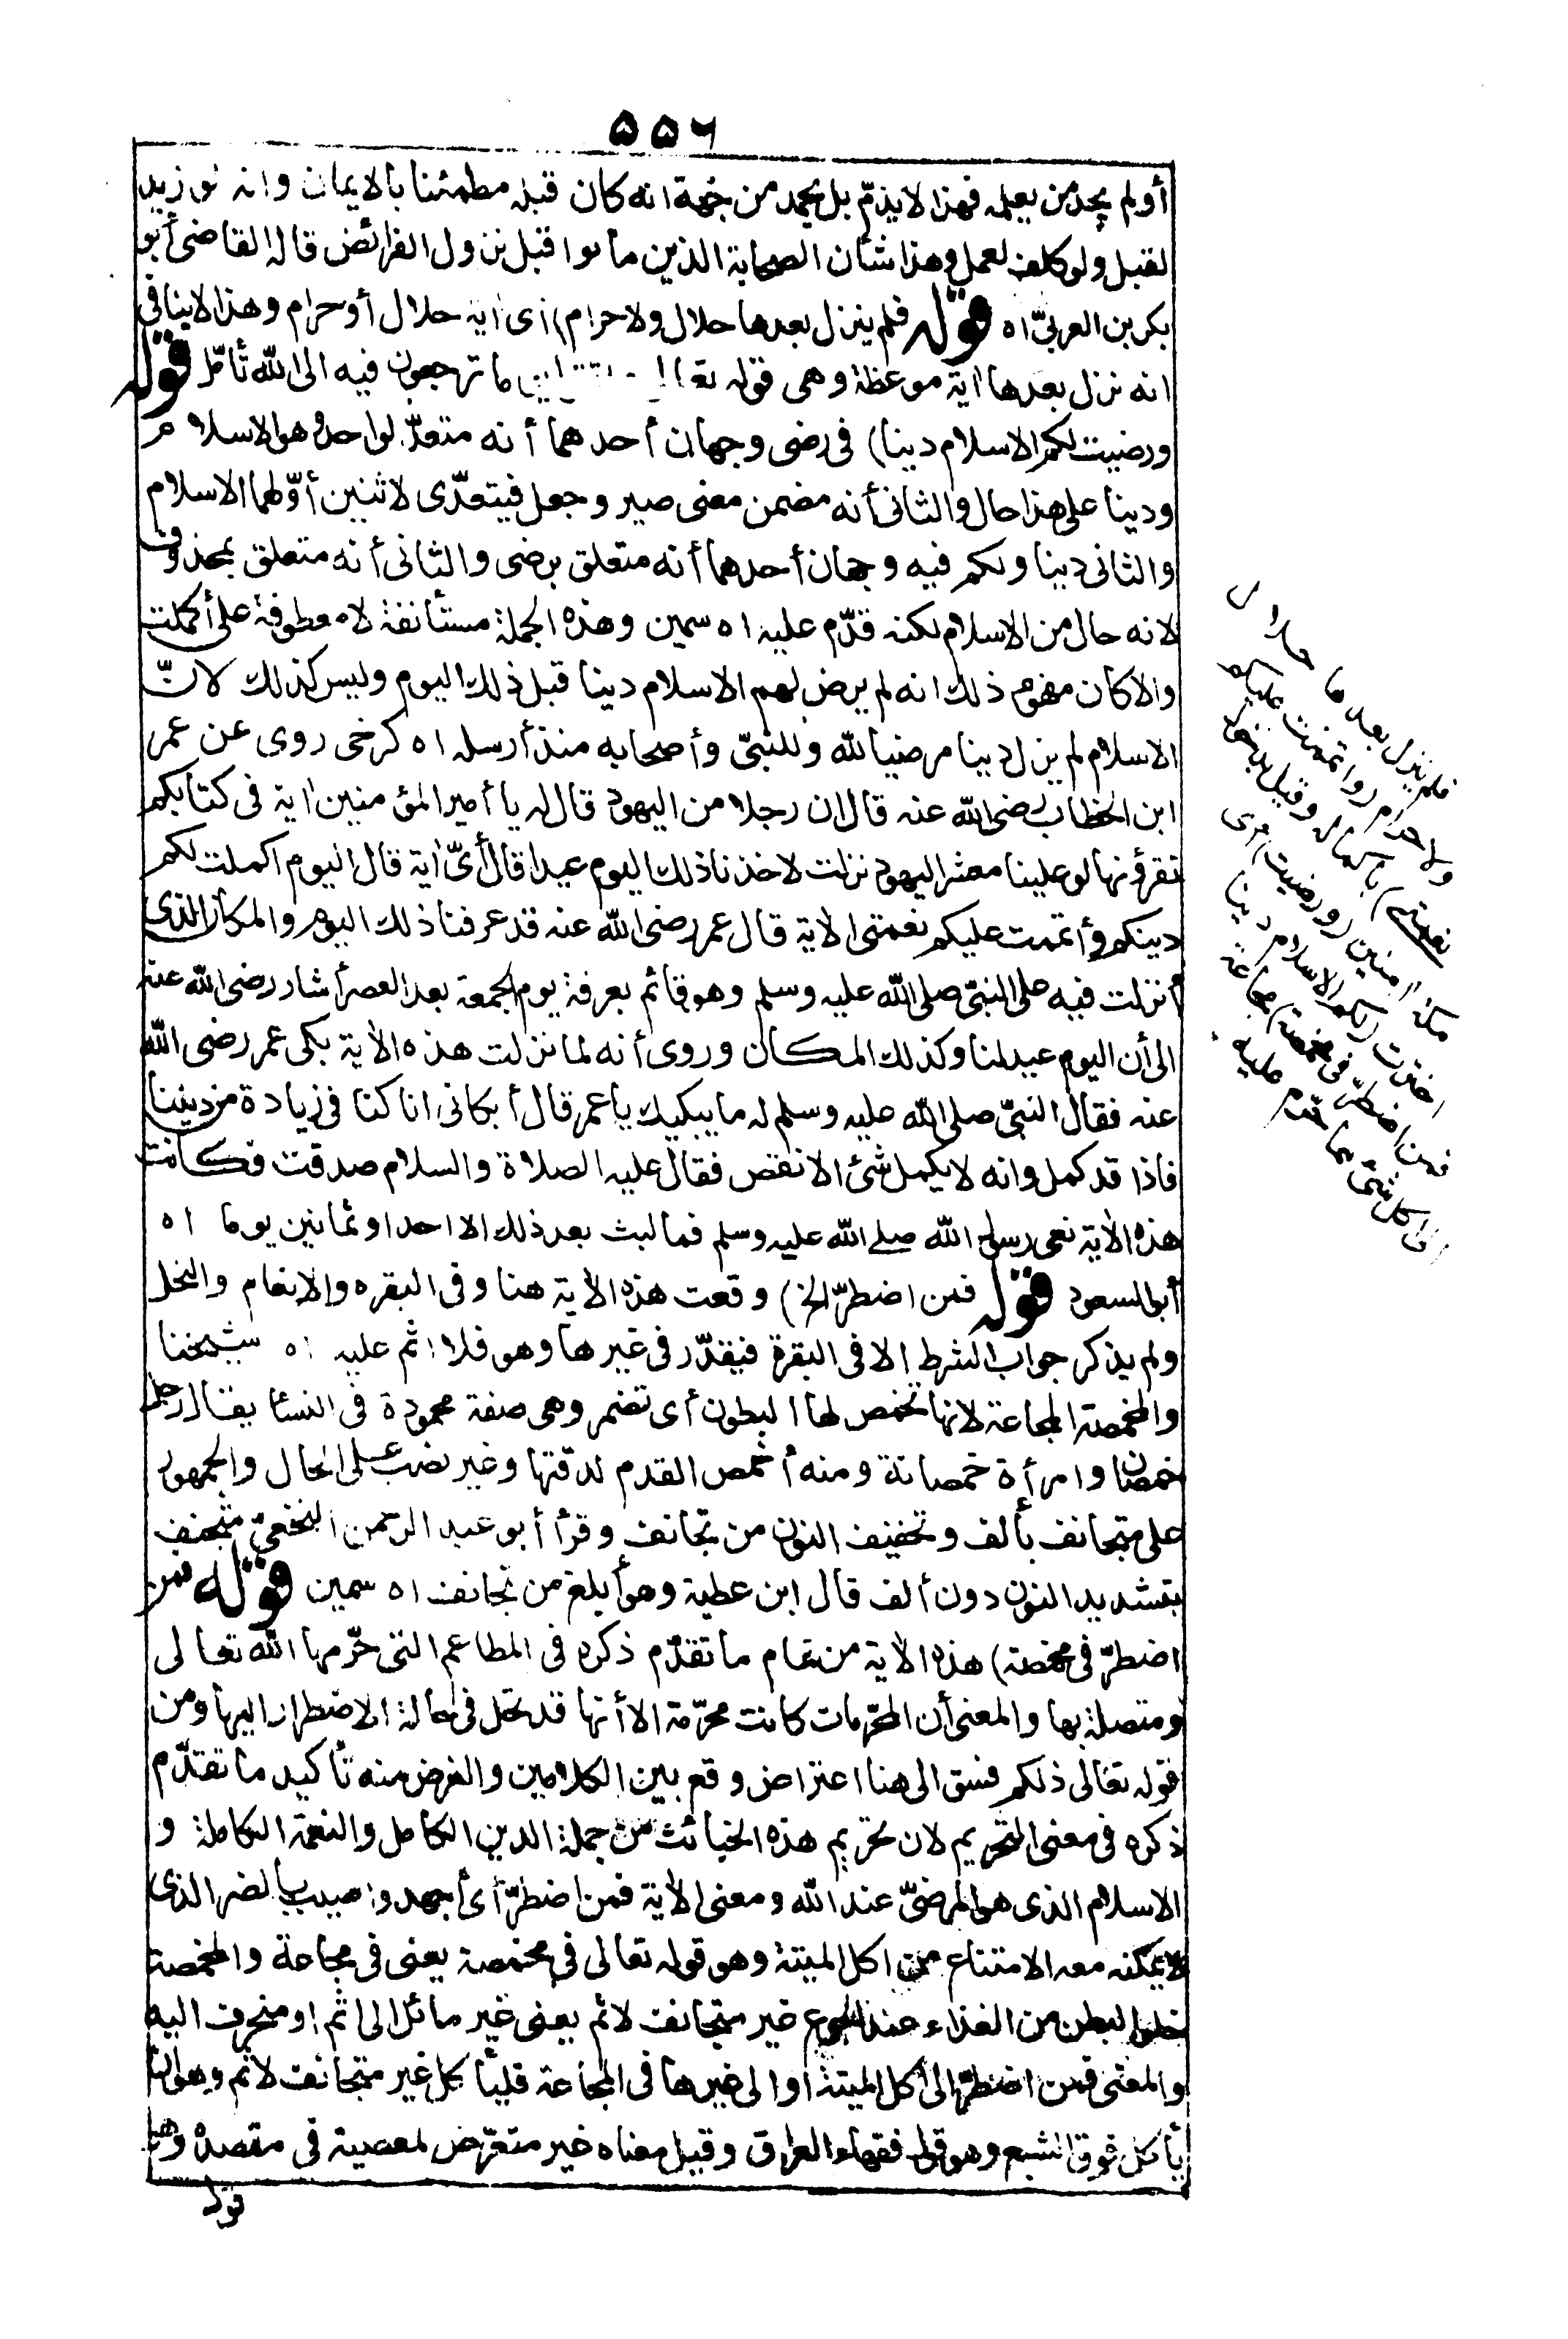 ٥٥٦
أولم يجد من يعلمه فهذا لا يذمّ بل يحمد من جهة انه كان قبله مطمئنا بالايمان وانه لو زيد
لقبل ولو كلف لعمل وهذا شأن الصحابة الذين ماتوا قبل نزول الفرائض قاله القاضى أبو
بكر بن العربىّ اه قوله فلم ينزل بعدها حلال ولا حرام) أى اٰية حلال أو حرام وهذا لا ينافى
انه نزل بعدها اٰية موعظة وهى قوله تعالى ترجعون فيه الى الله تأمّل قوله
ورضيت لكم الاسلام دينا) فى رضى وجهان أحدهما أنه متعدّ لواحد وهو الاسلام
ودينا على هذا حال والثانى أنه مضمن معنى صير وجعل فيتعدّى لاثنين أوّلهما الاسلام
والثانى دينا ولكم فيه وجهان أحدهما أنه متعلق برضى والثانى أنه متعلق بمحذوف
لانه حال من الاسلام لكنه قدّم عليه اه سمين وهذه الجملة مستأنفة لا معطوفة على أكملت
والا كان مفهوم ذلك انه لم يرض لهم الاسلام دينا قبل ذلك اليوم وليس كذلك لانّ
الاسلام لم يزل دينا مرضيا لله وللنبىّ وأصحابه منذ أرسله اه كرخى روى عن عمر
ابن الخطاب رضى الله عنه قال ان رجلا من اليهود قال له يا أمير المؤمنين اٰية فى كتابكم
تقرؤنها لو علينا معشر اليهود نزلت لاتخذنا ذلك اليوم عيدا قال أىّ اٰية قال اليوم اكملت لكم
دينكم وأتممت عليكم نعمتى الاٰية قال عمر رضى الله عنه قد عرفنا ذلك اليوم والمكان الذى
أنزلت فيه على النبىّ صلى الله عليه وسلم وهو قائم بعرفة يوم الجمعة بعد العصر أشار رضى الله عنه
الى أن اليوم عيد لنا وكذلك المكان وروى أنه لما نزلت هذه الاٰية بكى عمر رضى الله
عنه فقال النبىّ صلى الله عليه وسلم له ما يبكيك يا عمر قال أبكانى انا كنا فى زيادة من ديننا
فاذا قد كمل وانه لا يكمل شئ الا نقص فقال عليه الصلاة والسلام صدقت فكانت
هذه الاٰية نعى رسول الله صلى الله عليه وسلم فما لبث بعد ذلك الا احدا وثمانين يوما اه
أبو السعود قوله فمن اضطرّ الخ) وقعت هذه الاٰية هنا وفى البقره والانعام والنحل
ولم يذكر جواب الشرط الا فى البقرة فيقدّر فى غيرها وهو فلا اثم عليه اه شيخنا
والمخمصة المجاعة لانها تخمص لها البطون أى تضمر وهى صفة محمودة فى النساء يقال رجل
خمصان وامرأة خمصانة ومنه أخمص القدم لدقتها وغير نصب على الحال والجمهور
على متجانف بألف وتخفيف النون من تجانف وقرأ أبو عبد الرحمن النخعىّ متجنف
بتشديد النون دون ألف قال ابن عطية وهو أبلغ من تجانف اه سمين قوله فمن
اضطرّ فى مخمصة) هذه الاٰية من تمام ما تقدّم ذكره فى المطاعم التى حرّمها الله تعالى
ومتصلة بها والمعنى أن المحرّمات كانت محرّمة الا أنها قد تحل فى حالة الاضطرار اليها ومن
قوله تعالى ذلكم فسق الى هنا اعتراض وقع بين الكلامين والغرض منه تأكيد ما تقدّم
ذكره فى معنى التحريم لان تحريم هذه الخبائث من جملة الدين الكامل والنعمة الكاملة و
الاسلام الذى هو المرضىّ عند الله ومعنى الاٰية فمن اضطرّ أى أجهد واصيب بالضر الذى
لا يمكنه معه الامتناع من اكل الميتة وهو قوله تعالى فى مخمصة يعنى فى مجاعة والمخمصة
خلو البطن من الغذاء عند الجوع غير متجانف لاثم يعنى غير مائل الى اثم او منحرف اليه
والمعنى فمن اضطرّ الى أكل الميتة أو الى غيرها فى المجاعة فليأكل غير متجانف لاثم وهو ان
يأكل فوق الشبع وهو قول فقهاء العراق وقيل معناه غير متعرّض لمعصية فى مقصده وهو
قول
فلم ينزل بعدها حلال
ولا حرام (واتممت عليكم
نعمتى) باكماله وقيل بدخول
مكة اٰمنين (ورضيت) أى
اخترت (لكم الاسلام دينا
فمن اضطرّ فى مخمصة) مجاعة
الى اكل شئ مما حرّم عليه